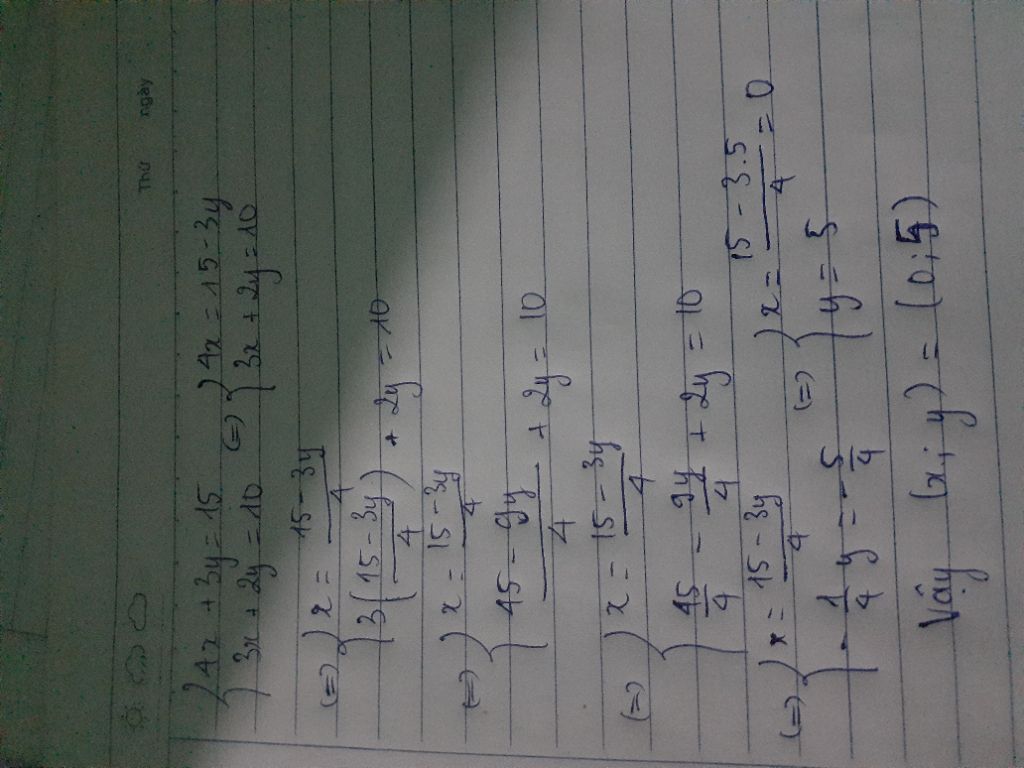 Thứ ngày
{ 4x + 3y = 15 (=) { 4x = 15 - 3y
{ 3x + 2y = 10 { 3x + 2y = 10
(=) { x = (15 - 3y)/4
{ 3((15 - 3y)/4) + 2y = 10
(=) { x = (15 - 3y)/4
{ (45 - 9y)/4 + 2y = 10
(=) { x = (15 - 3y)/4
{ 45/4 - 9y/4 + 2y = 10
(=) { x = (15 - 3y)/4 (=) { x = (15 - 3.5)/4 = 0
{ -1/4 y = -5/4 { y = 5
Vậy (x; y) = (0; 5)